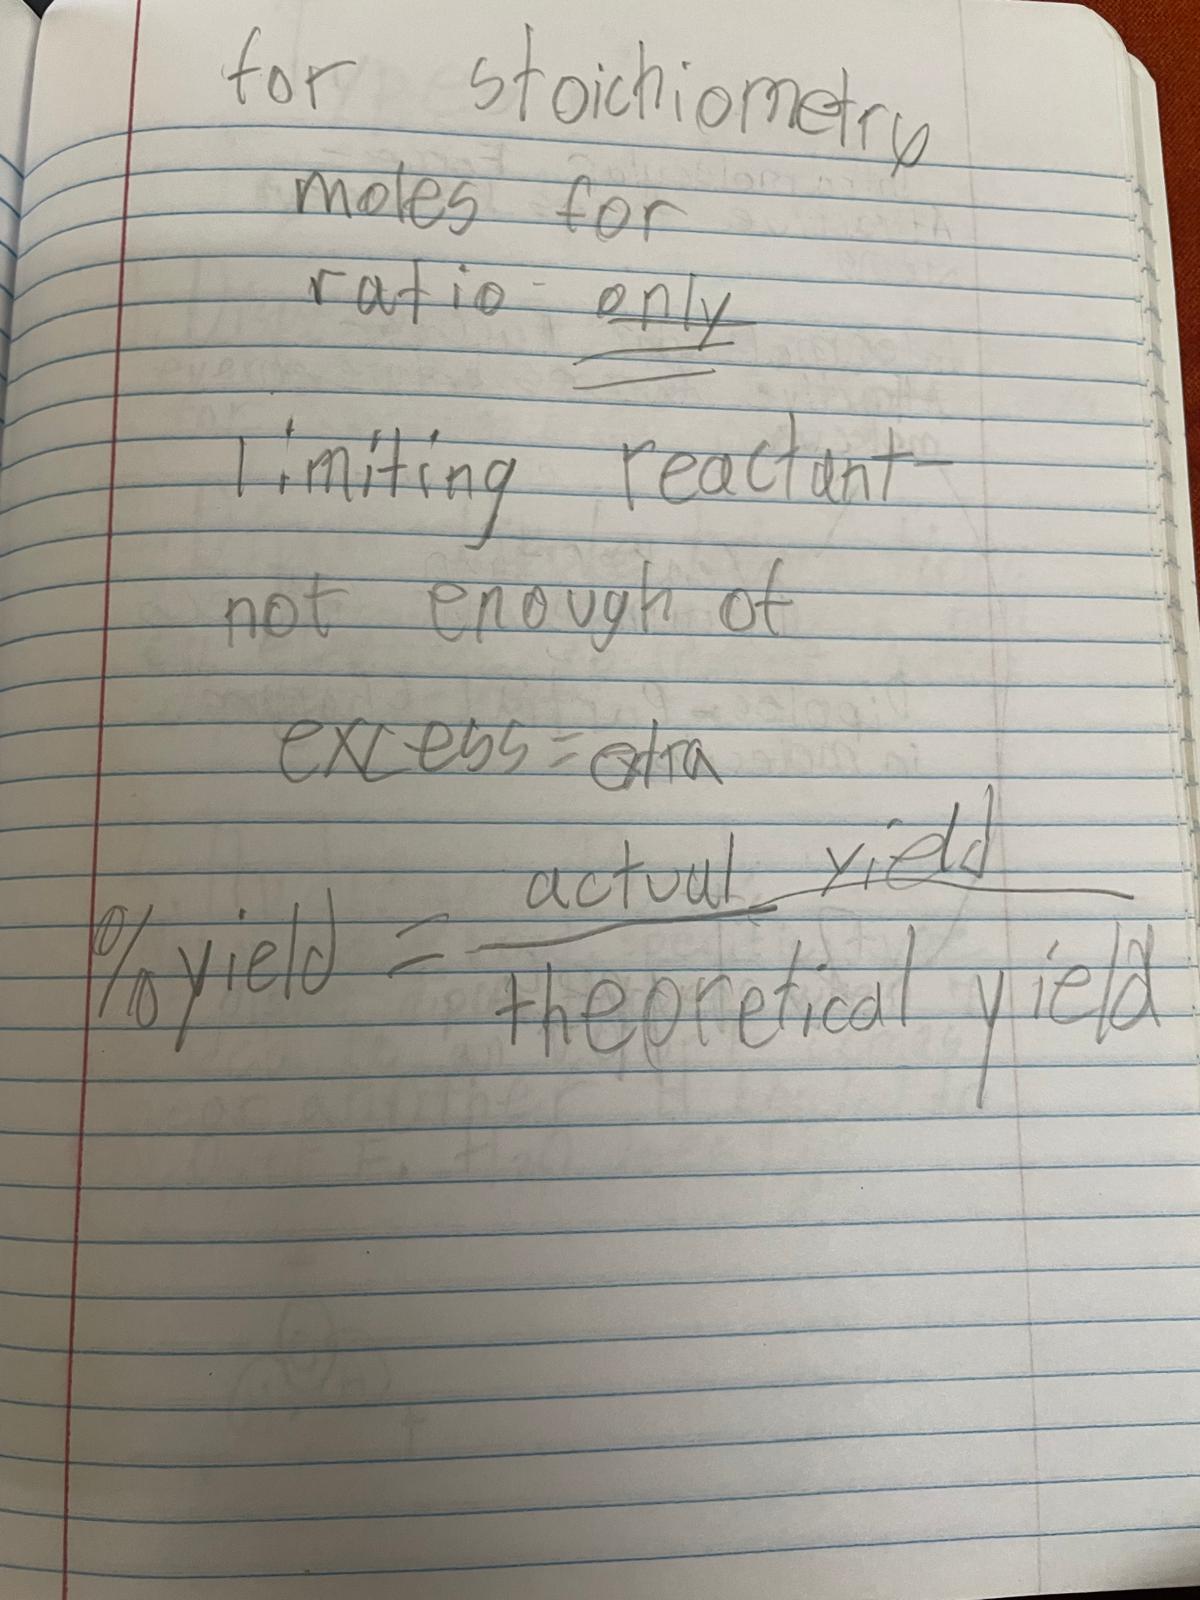 for stoichiometry
moles for
ratio - only
limiting reactant -
not enough of
excess = extra
actual yield
%yield =
theoretical yield